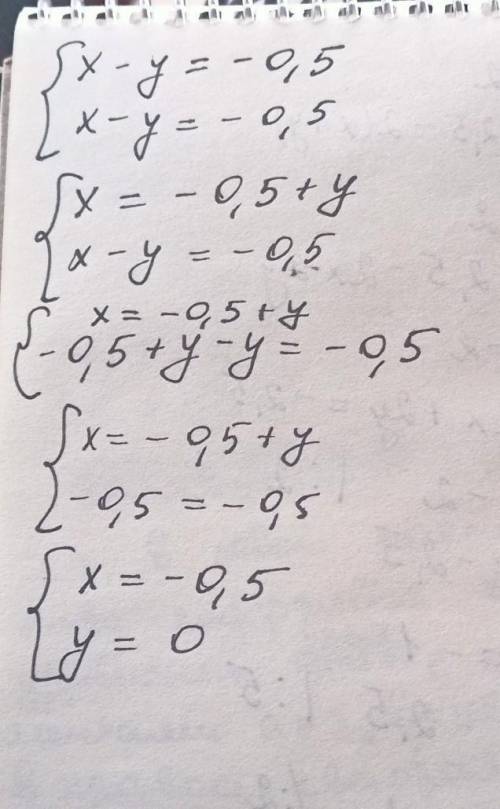 x - y = - 0,5
x - y = - 0,5
x = - 0,5 + y
x - y = - 0,5
x = - 0,5 + y
- 0,5 + y - y = - 0,5
x = - 0,5 + y
- 0,5 = - 0,5
x = - 0,5
y = 0